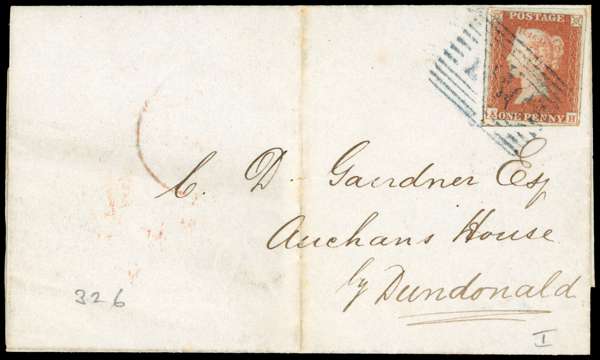 POSTAGE
A ONE PENNY H
C. D. Gairdner Esq
Auchans House
by Dundonald
326
I